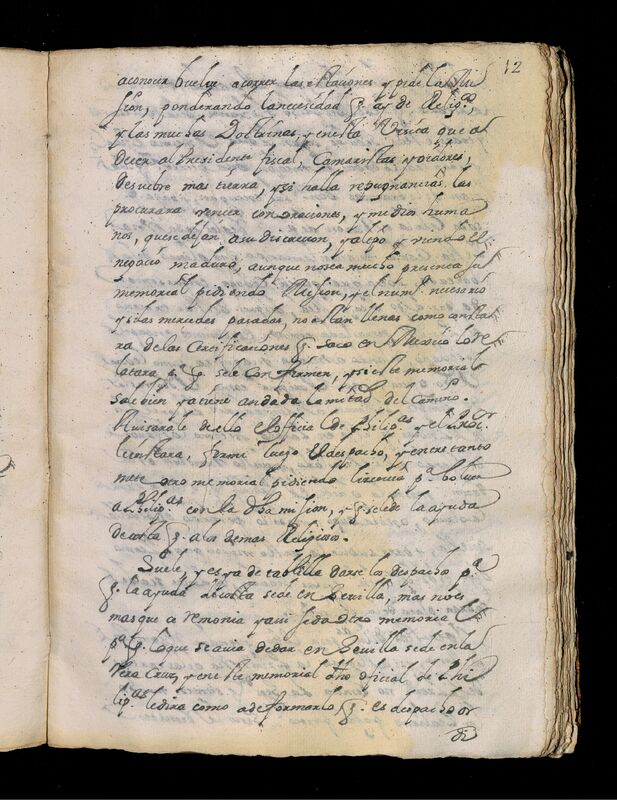 12
aconocer buelve acorrer las estaciones y pide la Mi
sion, ponderando lanecesidad q. ay de Relig.os,
y las muchas Doctrinas, y en esta Visita que al
decer al Presidente fiscal, Camaristas y oidores,
descubre mas tierra, y si halla repugnancias las
procurara vencer con oraciones, y medios huma
nos, que se dejan a su discrecion, y alepo y viendo el
negocio maduro, aunque no sea mucho presenta su
memorial pidiendo Mision, y el num.o necesario
y si las mercedes pasadas, no estan llenas como consta
ra de las Certificaciones q. saco en Mexico lo re
latara p.a q. se le confirmen, y si este memorial
sale bien ya tiene andada la mitad del Camino.
Avisarale de ello el official de Philip.as y el
luego el despacho, y entre tanto
otro memorial pidiendo licencia p.a bolver
a Philip.as con la dha mision, y q. se le de la ayuda
de costa q. a los demas Religiosos.
Suele, y es ya de tablilla darse los despachos p.a
q. la ayuda de costa se de en Sevilla, mas no es
mas que ceremonia y asi se da otro memorial
p.a q. lo que se avia de dar en Sevilla se de en la
Vera Cruz, y en este memorial dho oficial de Phi
lip.as le dira como a de formarlo q. es despachador
de